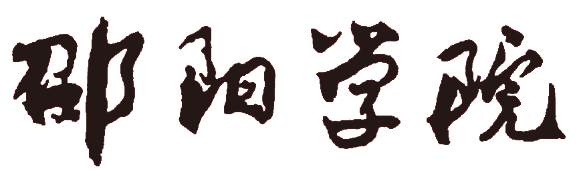 邵阳学院